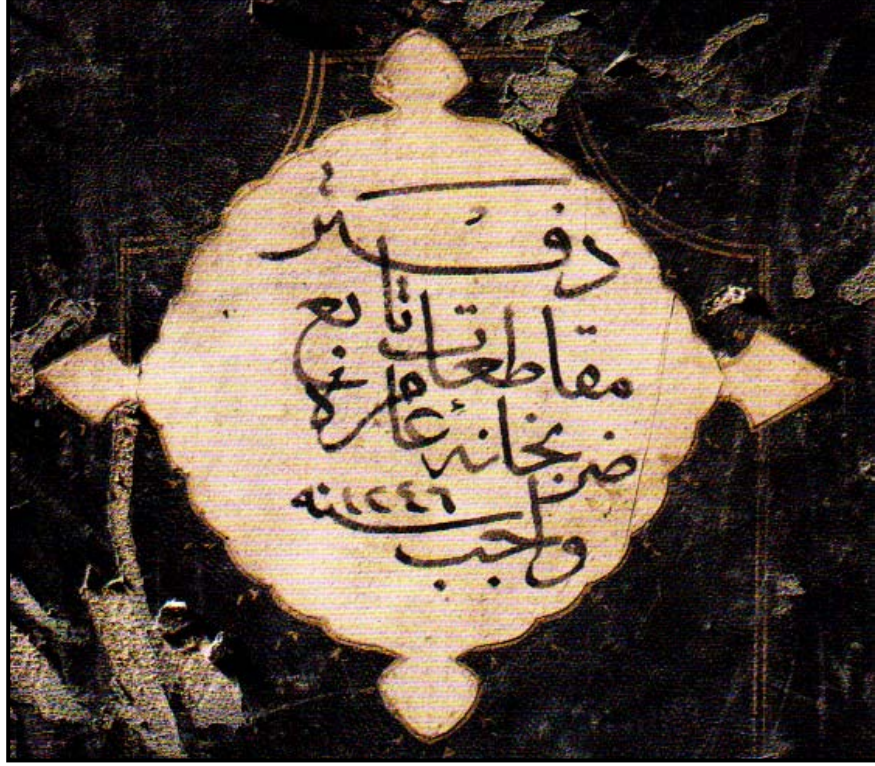 دفتر
مقاطعات تابع
ضربخانۀ عامره
واجب سنه ١٢٤٦